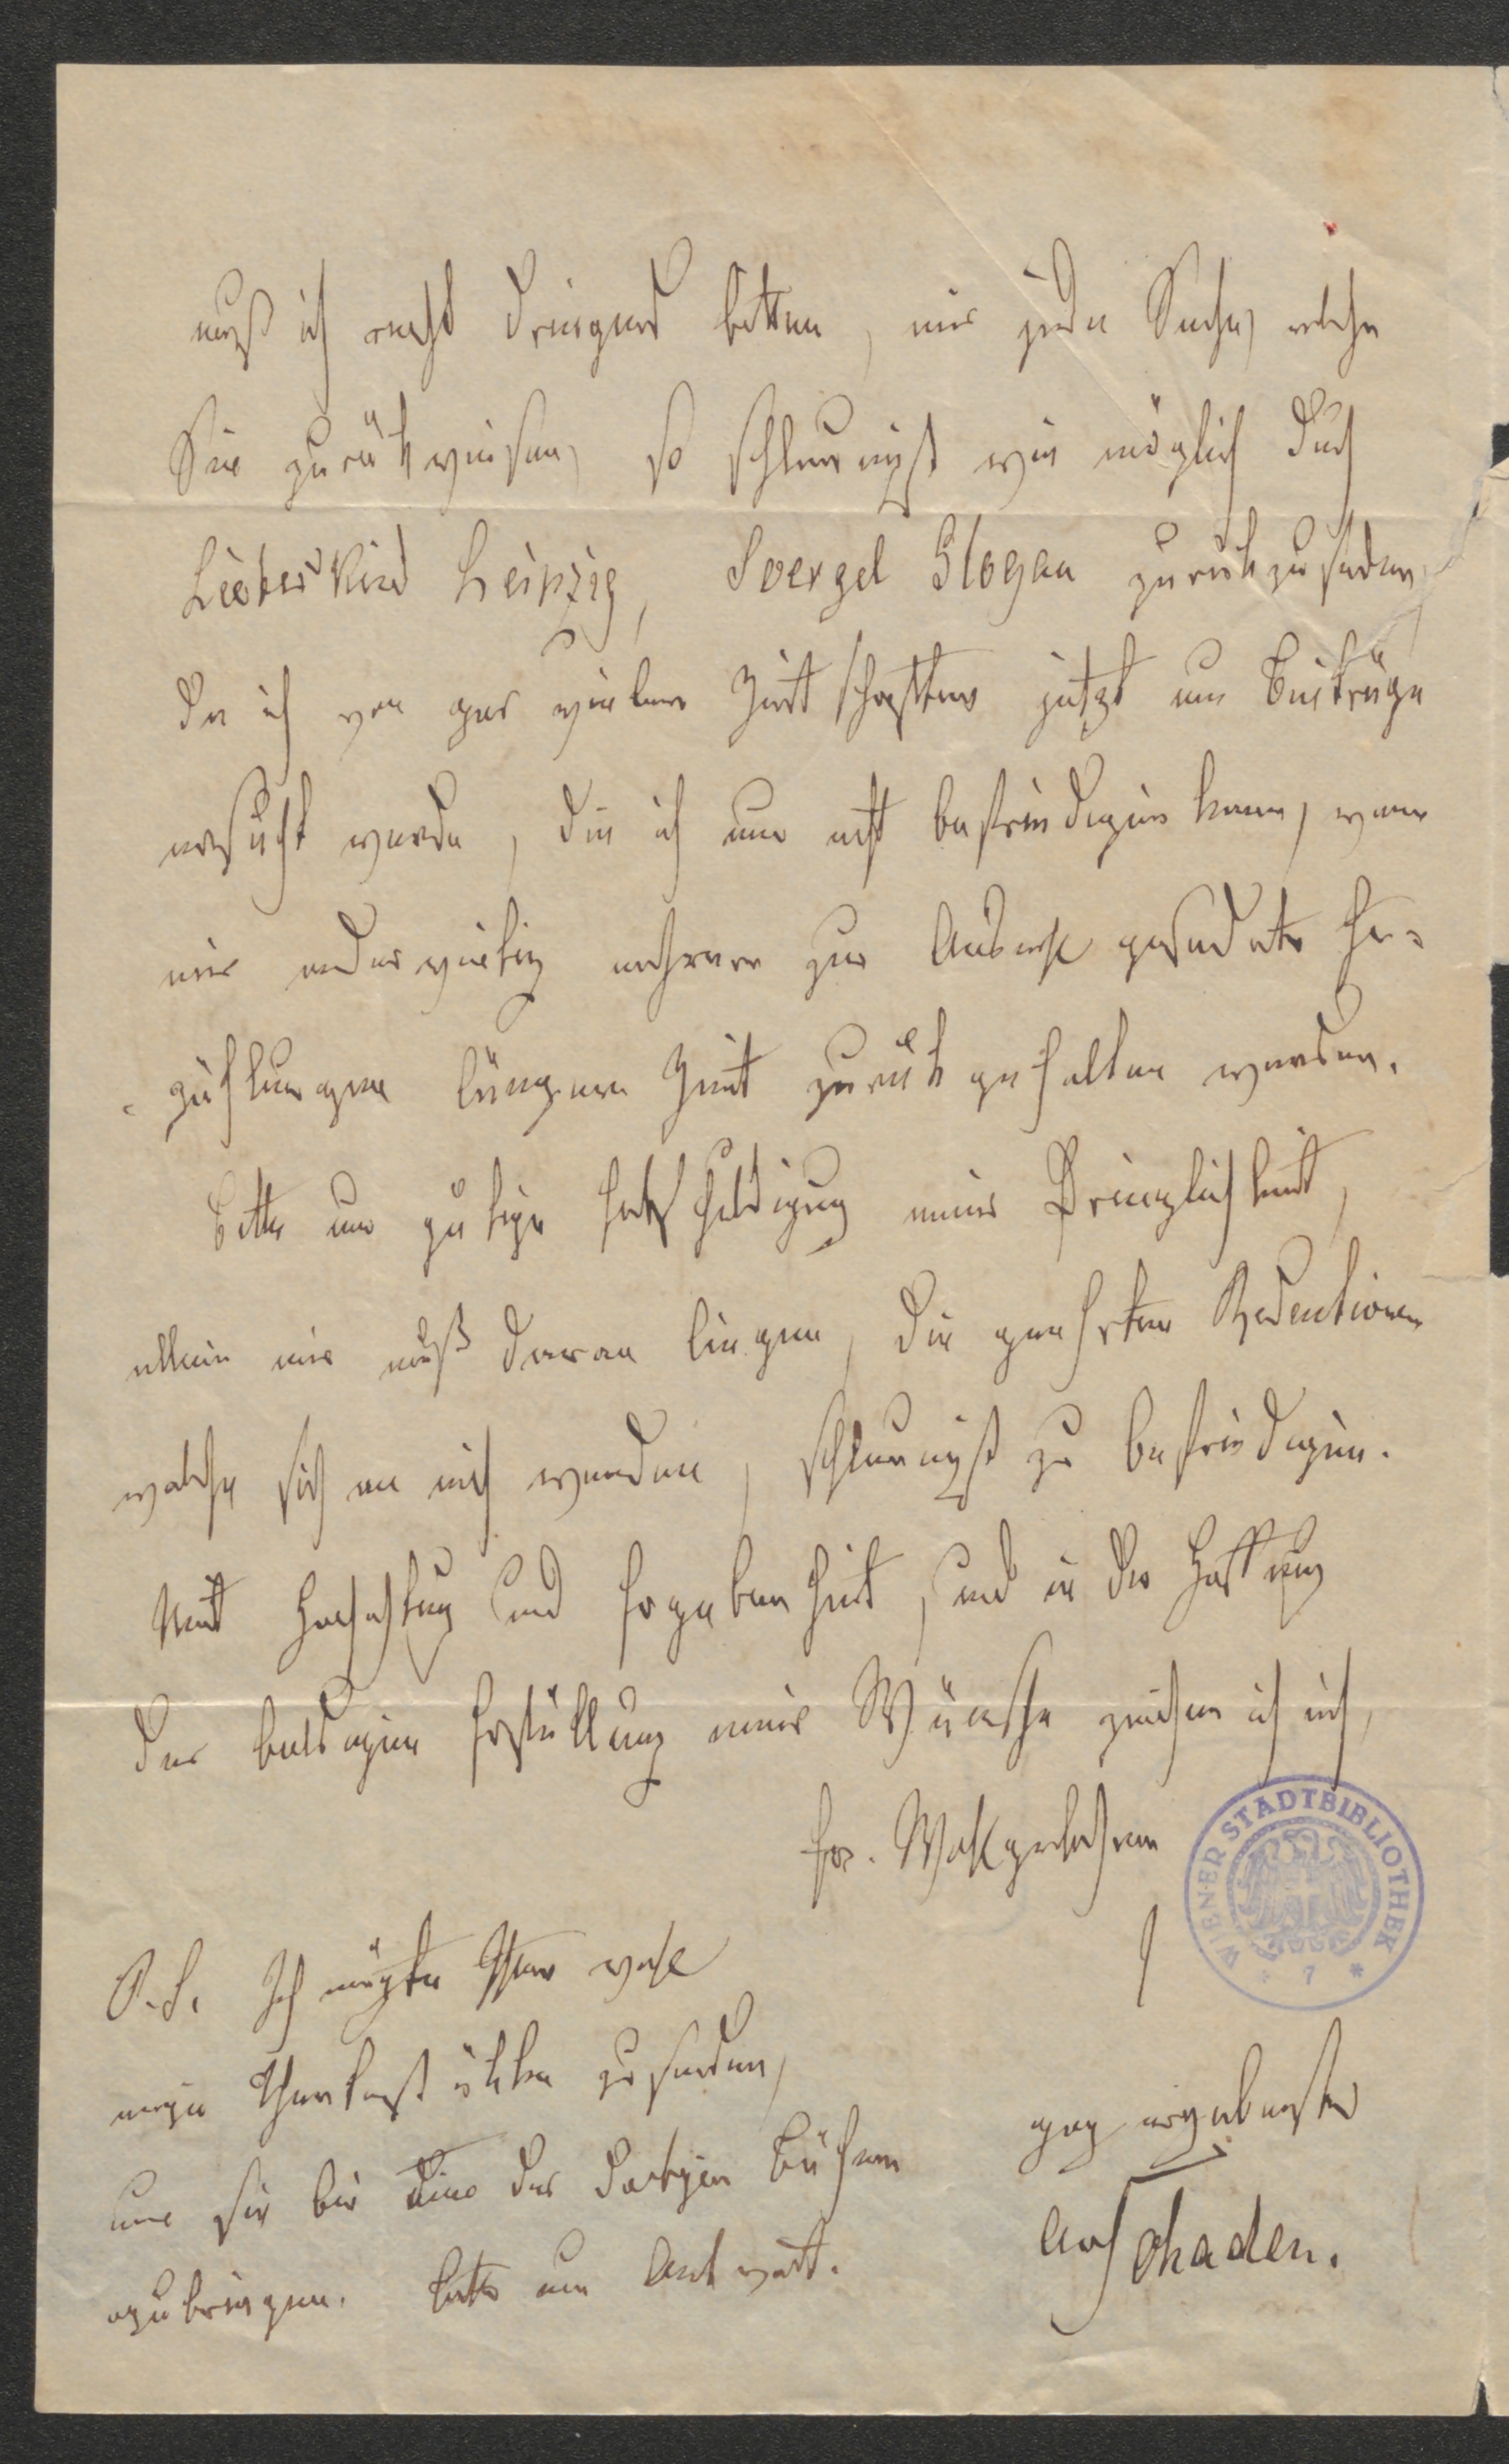 muß ich recht dringend bitten, mir jede Sache, welche
Sie zurükweisen, so schleunigst wie möglich durch
Liebeskind Leipzig, Soergel Glogau zurükzusenden,
da ich von gar vielen Zeitschriften jetzt um Beiträge
ersucht werde, die ich nur nicht befriedigen kann, wenn
mir anderweitig mehrere zur Auswahl gesendete Er=
zählungen längere Zeit zurükgehalten werden.
Bitte um gütige Entschuldigung meiner Dringlichkeit,
allein mir muß daran liegen, die geehrten Redactionen
welche sich an mich wenden, schleunigst zu befriedigen.
Mit Hochachtung und Ergebenheit, und in der Hoffnung
der baldigen Erfüllung meiner Wünsche zeichne ich mich,
Er. Wohlgeboren
P.S. Ich mögte Ihnen wohl
einige Theaterstükke zusenden,
um sie bei einer der dortigen Bühnen
anzubringen. Bitte um Antwort.
ganz ergebenster
AvSchaden.
WIENER STADTBIBLIOTHEK
* 7 *